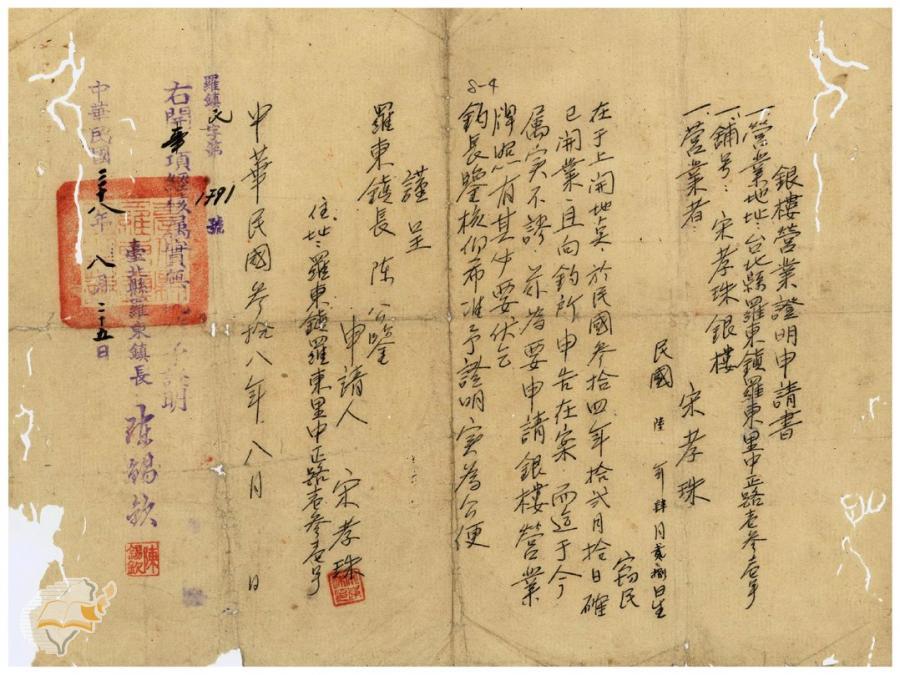 銀樓營業證明申請書
一、營業地址：台北縣羅東鎮羅東里中正路壱参壱号
一、鋪号：宋孝珠銀樓
一、營業者：宋孝珠
民國 陸 年 肆 月 貳捌日生
竊民
在于上開地点於民國参拾四年拾弍月拾日確
已開業且向鈞所申告在案而迄于今
属实不謬茲為要申請銀樓營業
牌照有其必要伏乞
鈞長鑒核仰希准予證明实為公便
8-4
謹呈
羅東鎮長陳 公鑒
申請人 宋孝珠
住址：羅東鎮羅東里中正路壱参壱号
中華民國参拾八年八月 日
羅鎮民字第1791號
右開事項經核屬實
證明
臺北縣羅東鎮長 陳錫欽
陳錫欽
中華民國三十八年八月二十五日